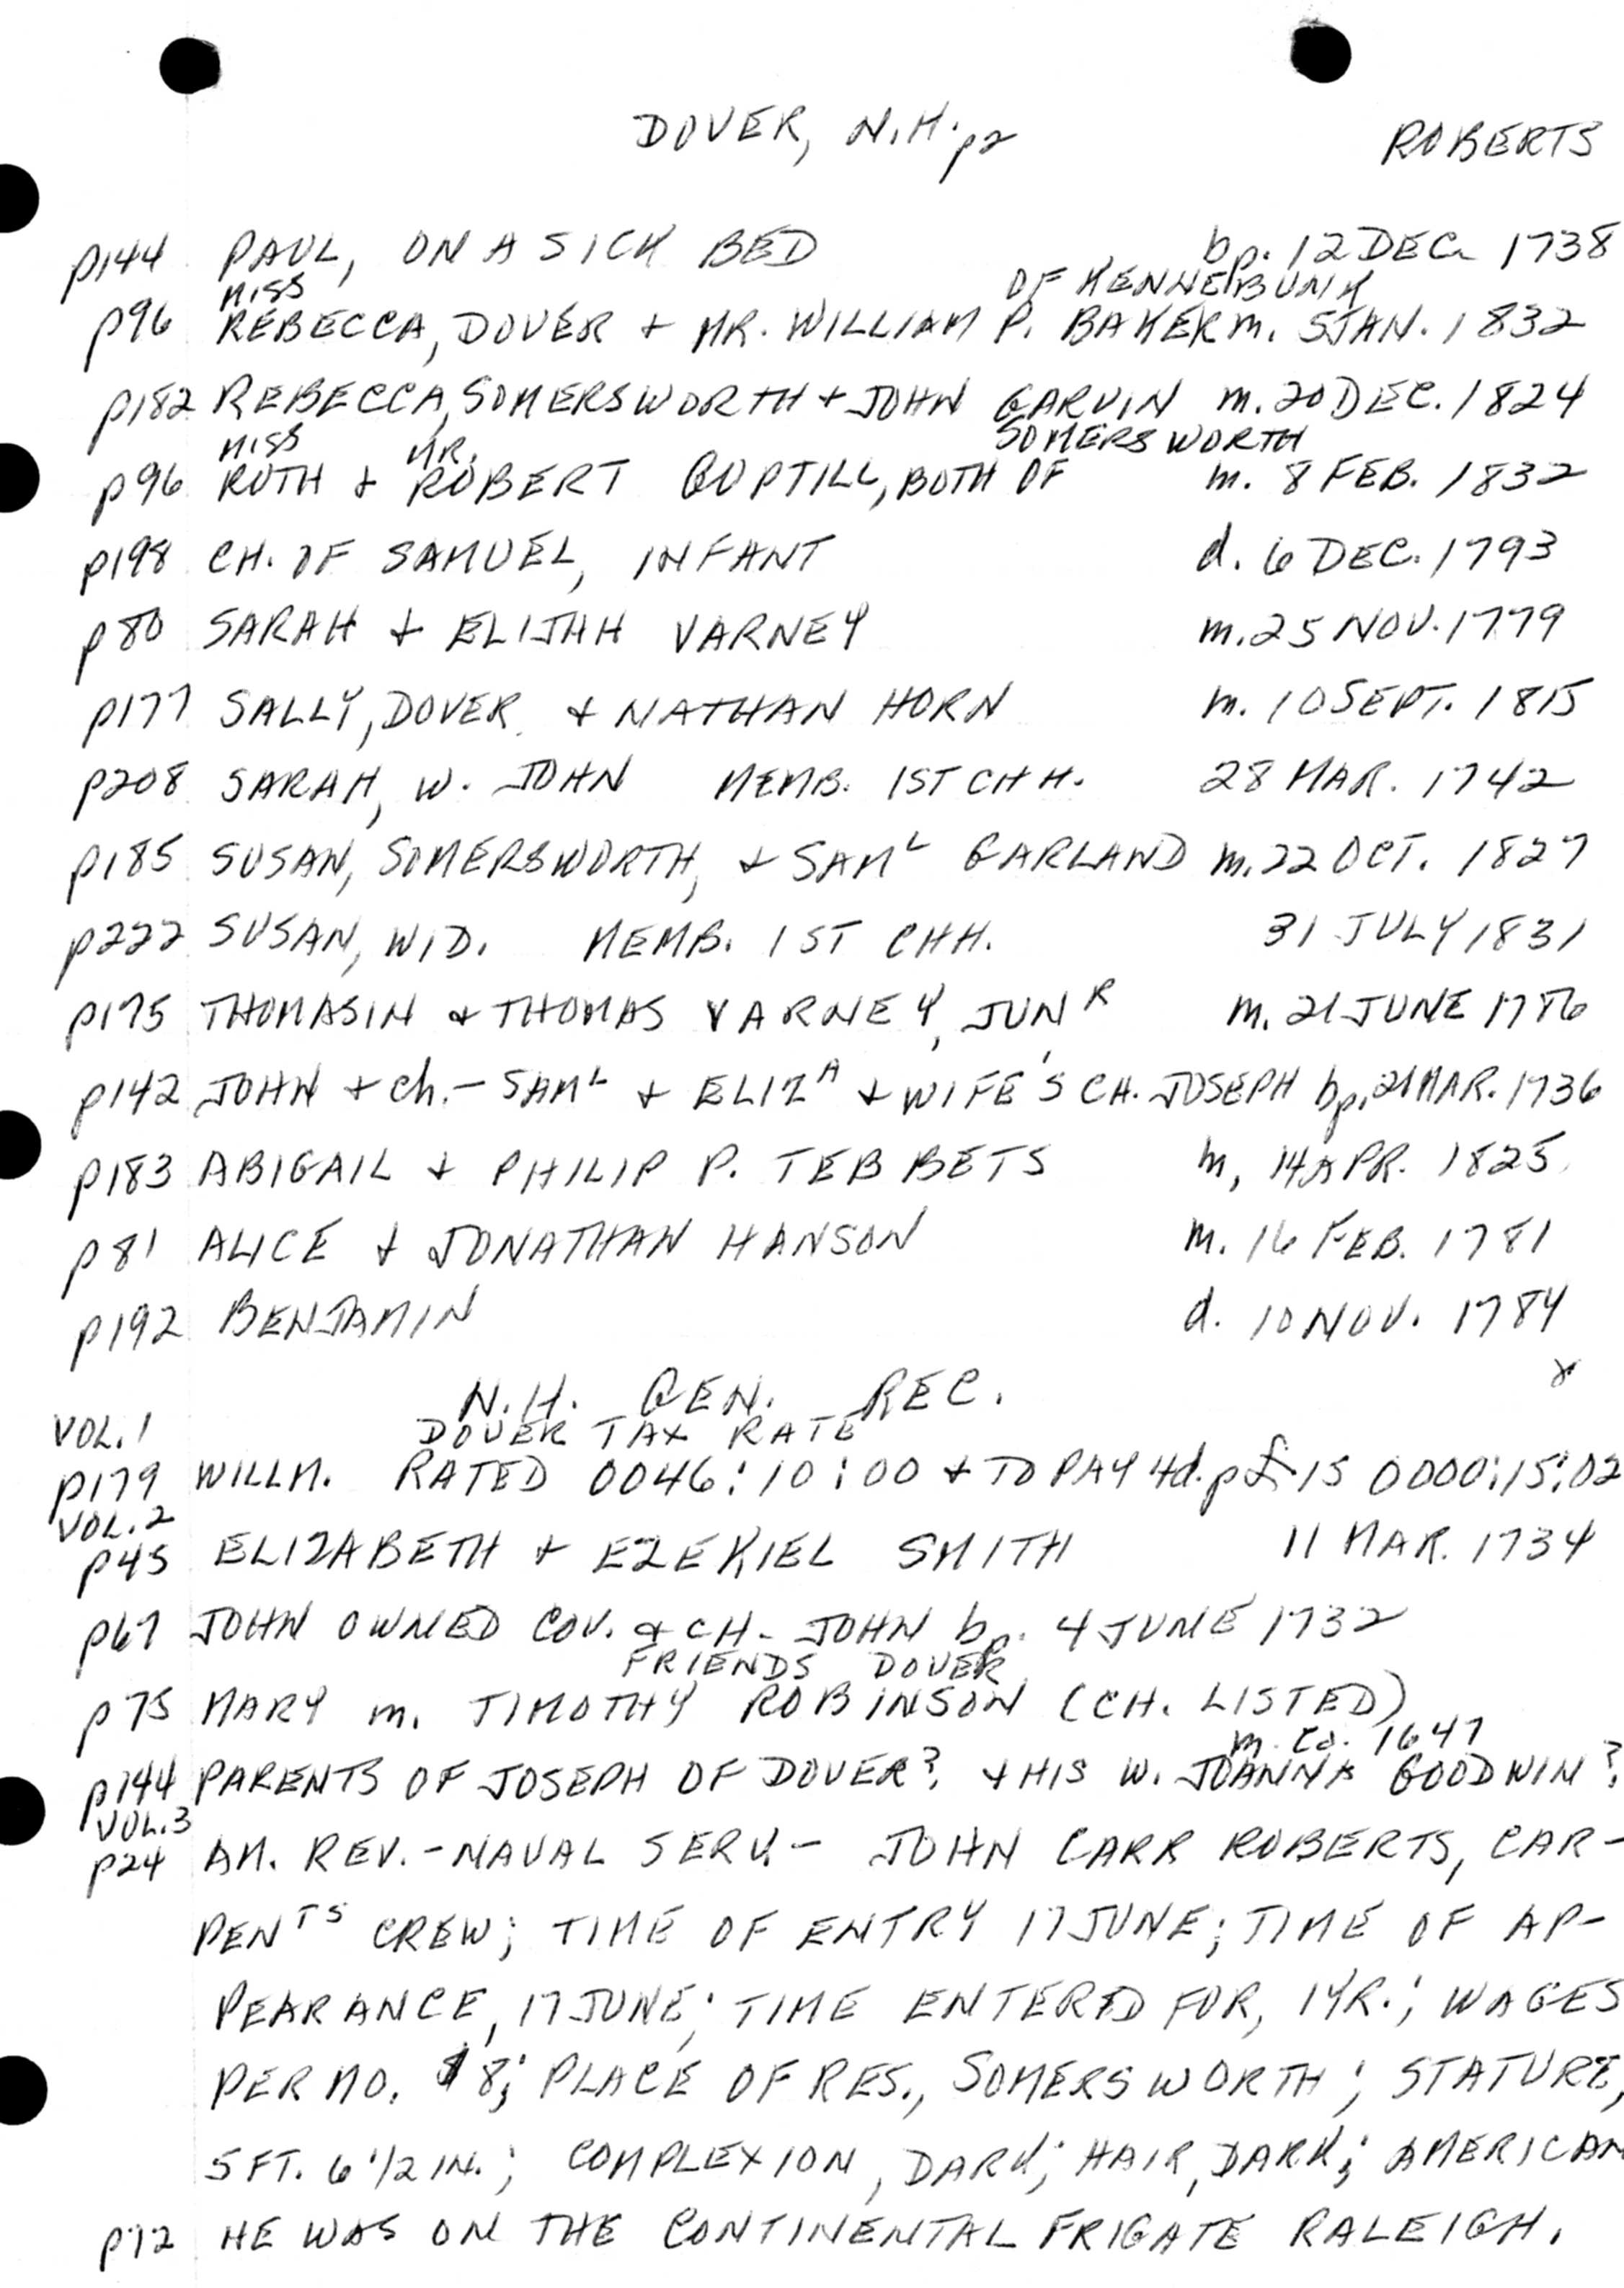 DOVER, N.H. p2 ROBERTS
p144 PAUL, ON A SICK BED bp. 12 DEC. 1738
MISS OF KENNEBUNK
p96 REBECCA, DOVER + MR. WILLIAM P. BAKER m. 5 JAN. 1832
p182 REBECCA, SOMERSWORTH + JOHN GARVIN m. 20 DEC. 1824
MISS MR. SOMERSWORTH
p96 RUTH + ROBERT GUPTILL, BOTH OF m. 8 FEB. 1832
p198 CH. OF SAMUEL, INFANT d. 6 DEC. 1793
p80 SARAH + ELIJAH VARNEY m. 25 NOV. 1779
p177 SALLY, DOVER + NATHAN HORN m. 10 SEPT. 1815
p208 SARAH, W. JOHN MEMB. 1ST CHH. 28 MAR. 1742
p185 SUSAN, SOMERSWORTH, + SAML GARLAND m. 22 OCT. 1827
p222 SUSAN, WID. MEMB. 1ST CHH. 31 JULY 1831
p175 THOMASIN + THOMAS VARNEY, JUNR m. 21 JUNE 1786
p142 JOHN + ch. - SAML + ELIZA + WIFE'S CH. JOSEPH bp. 21 MAR. 1736
p183 ABIGAIL + PHILIP P. TEBBETS m, 14 APR. 1825
p81 ALICE + JONATHAN HANSON m. 16 FEB. 1781
p192 BENJAMIN d. 10 NOV. 1784
N.H. GEN. REC.
VOL. 1 DOVER TAX RATE
p179 WILLM. RATED 0046:10:00 + TO PAY 4d. p £ IS 0000:15:02
VOL. 2
p45 ELIZABETH + EZEKIEL SMITH 11 MAR. 1734
p67 JOHN OWNED COV. + CH- JOHN bp. 4 JUNE 1732
FRIENDS DOVER
p75 MARY m. TIMOTHY ROBINSON (CH. LISTED)
m. Ca. 1647
p144 PARENTS OF JOSEPH OF DOVER? + HIS W. JOANNA GOODWIN?
VOL. 3
p24 AM. REV. - NAVAL SERV. - JOHN CARR ROBERTS, CAR-
PENTS CREW; TIME OF ENTRY 17 JUNE; TIME OF AP-
PEARANCE, 17 JUNE; TIME ENTERED FOR, 1 YR.; WAGES
PER MO. $8; PLACE OF RES., SOMERSWORTH; STATURE,
5 FT. 6 1/2 IN.; COMPLEXION, DARK; HAIR, DARK; AMERICAN
p72 HE WAS ON THE CONTINENTAL FRIGATE RALEIGH.